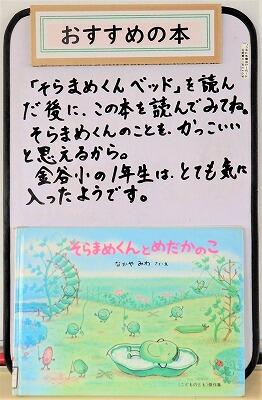 おすすめの本
「そらまめくんベッド」を読ん
だ後に、この本を読んでみてね。
そらまめくんのことを、かっこいい
と思えるから。
金谷小の1年生は、とても気に
入ったようです。
そらまめくんとめだかのこ
なかや みわ さく・え
〈こどものとも〉傑作集